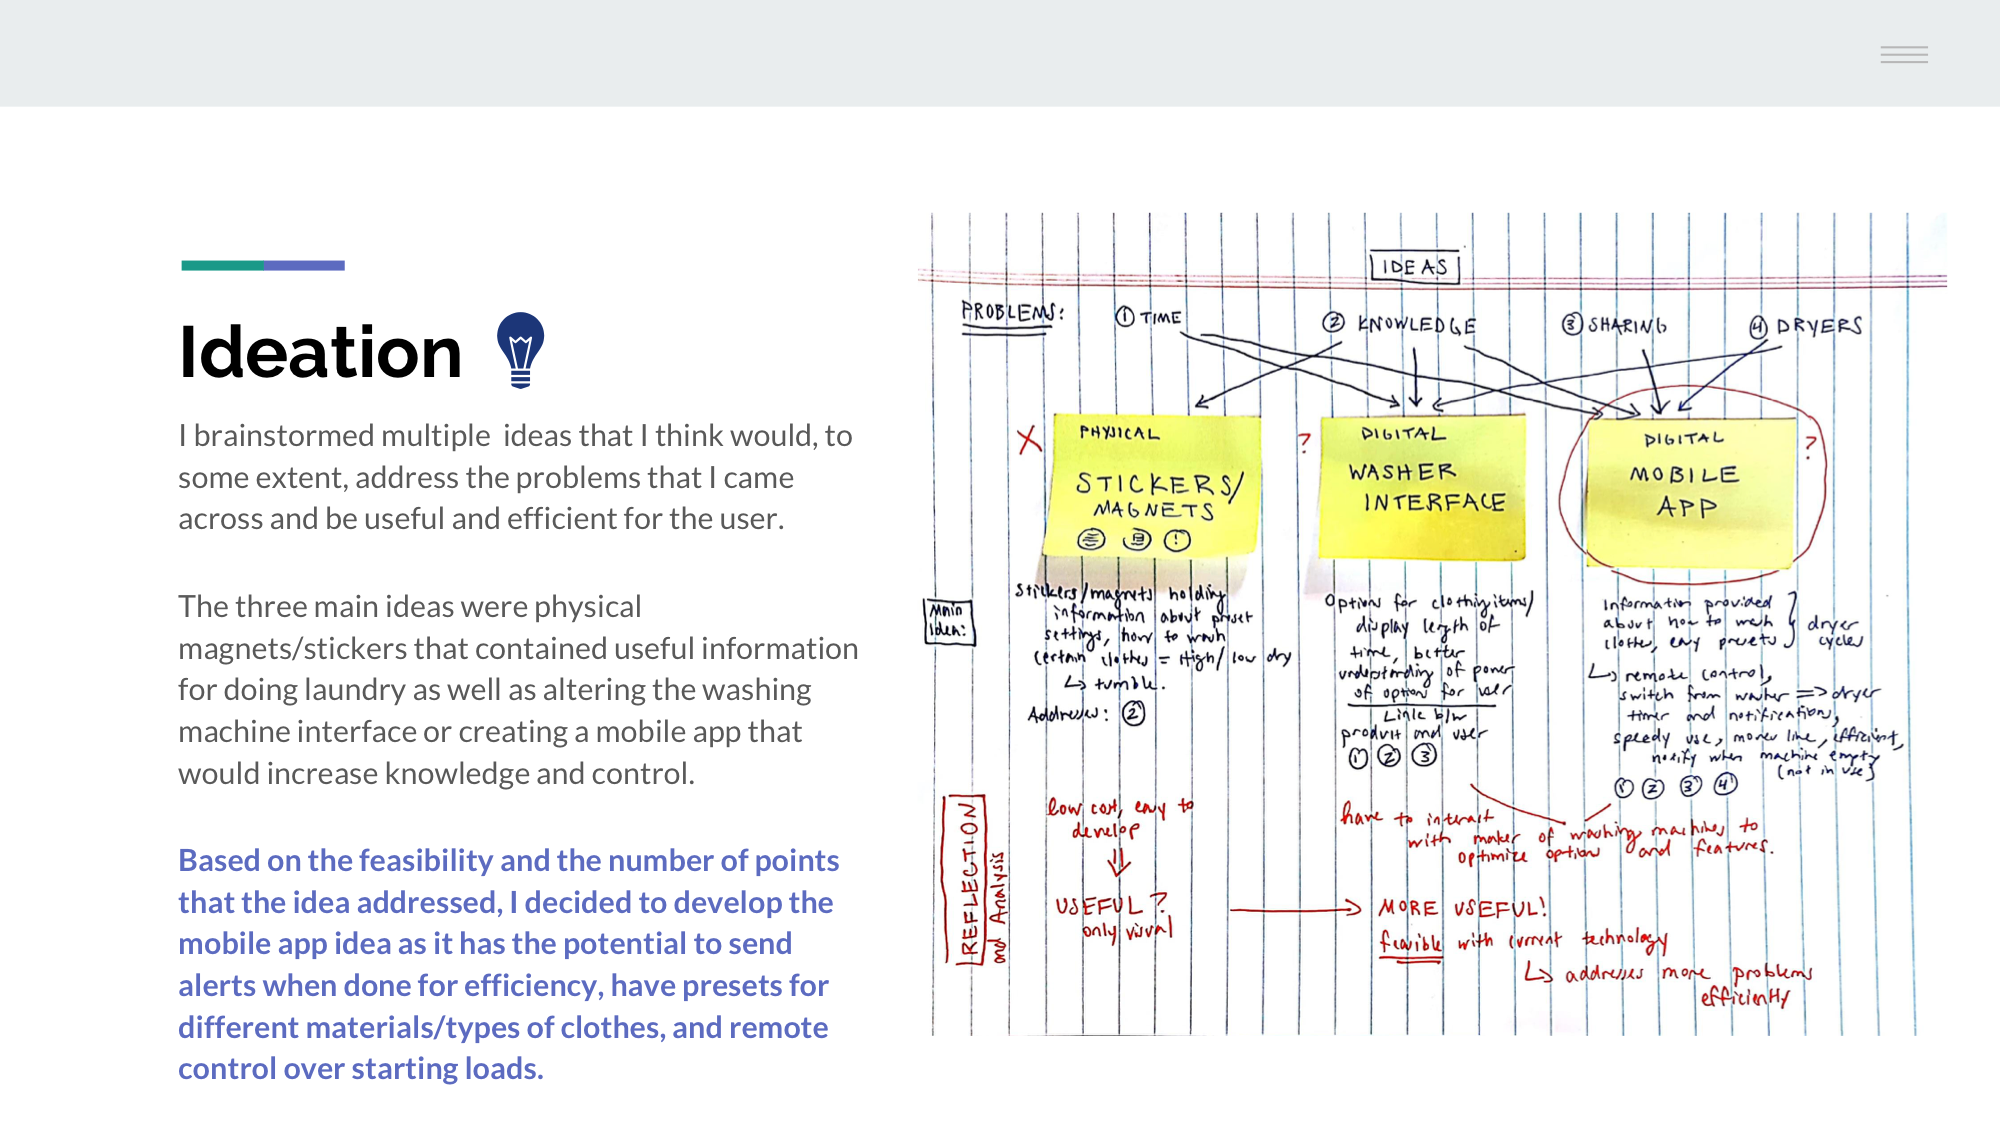 Ideation
I brainstormed multiple ideas that I think would, to
some extent, address the problems that I came
across and be useful and efficient for the user.
The three main ideas were physical
magnets/stickers that contained useful information
for doing laundry as well as altering the washing
machine interface or creating a mobile app that
would increase knowledge and control.
Based on the feasibility and the number of points
that the idea addressed, I decided to develop the
mobile app idea as it has the potential to send
alerts when done for efficiency, have presets for
different materials/types of clothes, and remote
control over starting loads.
IDEAS
PROBLEMS: ① TIME ② KNOWLEDGE ③ SHARING ④ DRYERS
X
PHYSICAL
STICKERS/
MAGNETS
?
DIGITAL
WASHER
INTERFACE
DIGITAL
MOBILE
APP
?
Main
Idea:
Stickers/magnets holding
information about preset
settings, how to wash
certain clothes = High/low dry
↳ tumble.
Addresses: ②
Options for clothing items/
display length of
time, better
understanding of power
of option for user
Link b/w
product and user
① ② ③
Information provided
about how to wash
clothes, easy presets } dryer
cycles
↳ remote control,
switch from washer => dryer
timer and notifications,
speedy use, efficient,
notify when machine empty
(not in use)
① ② ③ ④
REFLECTION
and Analysis
low cost, easy to
develop
⇓
USEFUL?
only visual
have to interact
with maker of washing machines to
optimize option and features.
→ MORE USEFUL!
feasible with current technology
↳ addresses more problems
efficiently